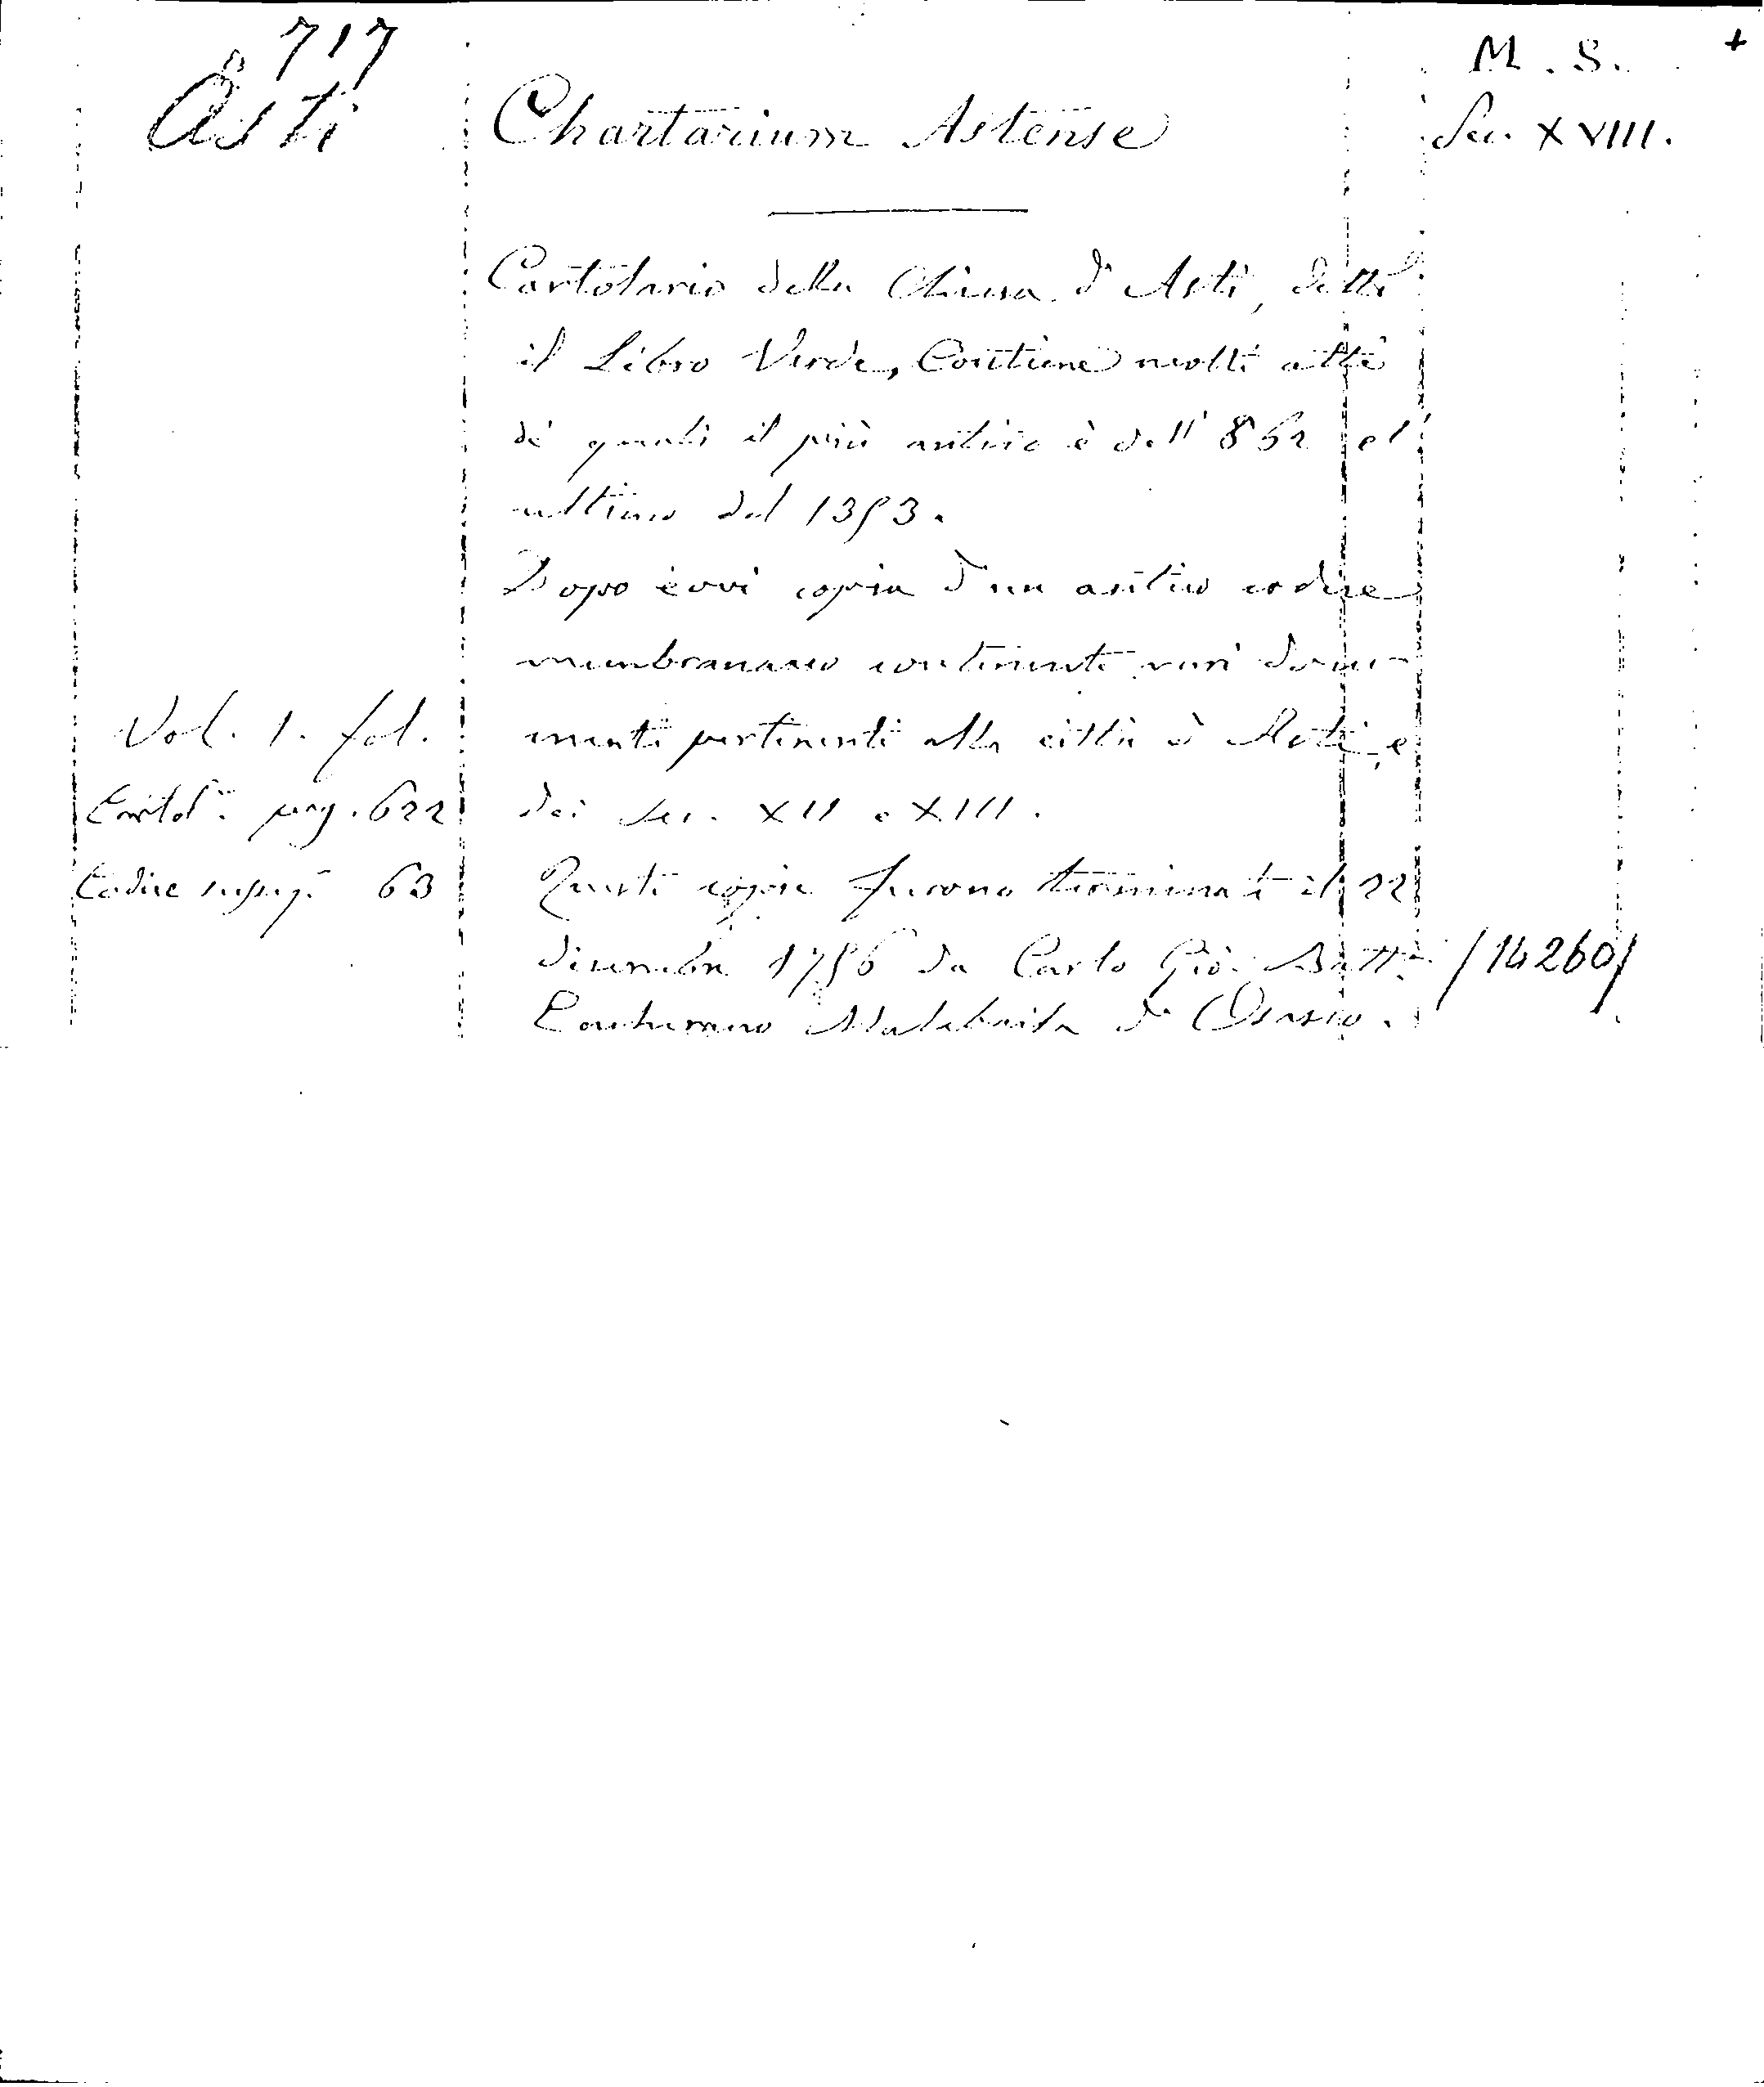 717
Asti
Chartarium Astense
M. S. +
Sec. XVIII.
Cartolario della Chiesa d'Asti, detto
il Libro Verde, Contiene molti atti
de' quali il più antico è dell' 862 el'
ultimo del 1353.
Dopo èvvi copia d'un antico codice
membranaceo contenente vari docu-
menti pertinenti alla città d'Asti, e
dei Sec. XII e XIII.
Queste copie furono terminate il 22
dicembre 1756 da Carlo Gio: Batta
Malabaila di
Vol. 1. fol.
Cartol.º pag. 622
Codice 63
/14260/